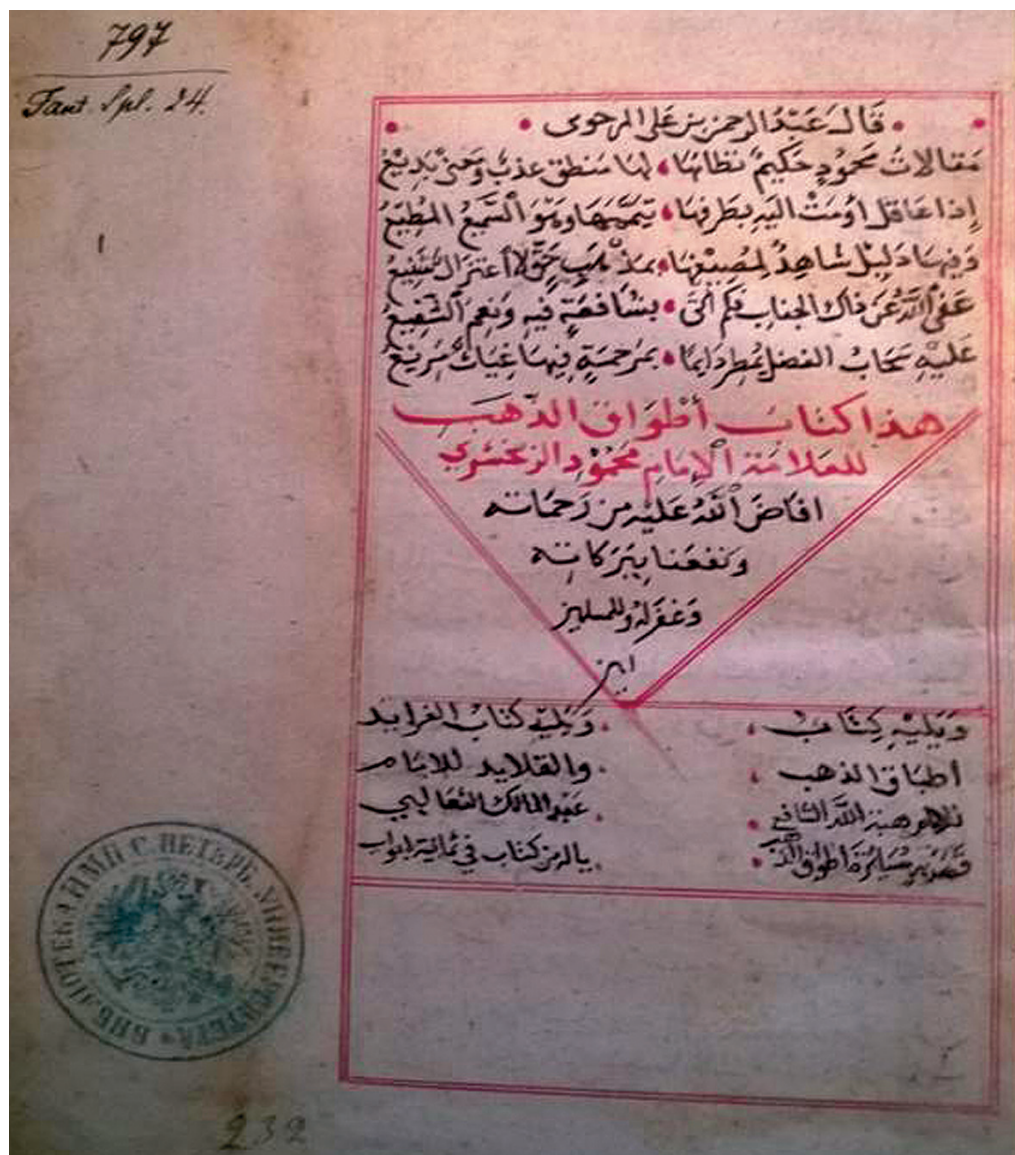 797
Tant. Spl. 24.
قَالَ عَبْدُ الرحمن بن على المرحوى
مَقالاتُ مَحمُودٍ حَكيمٌ نظامُها لها مَنطق عذبٌ وَمعنىً بَديعُ
إذا عَاقل أومَتْ اليه بطَرفها
وفيها دَليل شاهدٌ
عَفى اللّٰه عَن ذاك الجناب فكم أتى بشافعَةٍ فيه ونِعمَ الشفيعُ
عَليه سَحابُ الفضل تمطر دايمًا بمَرحمةٍ فيها غياثٌ مَريعُ
هذا كتاب أطْوَاق الذّهب
للعلامة الإمام محمُود الزمخشري
افَاضَ اللّٰه عَليْه من رَحمَاته
ونفعَنا ببَرَكاته
وَغفَرَ له وللمسلمين
امين
وَيَليْهِ كِتَابُ
أطبَاق الذهب
للامام هبة اللّٰه الشافعي
وَيَليه كتابُ الفرايد
والقلايد للامام
عَبد المالك الثعَالبي
كتاب في ثمانية ابواب
БИБЛІОТЕКА ИМП. С. ПЕТЕРБ. УНИВЕРСИТЕТА
232